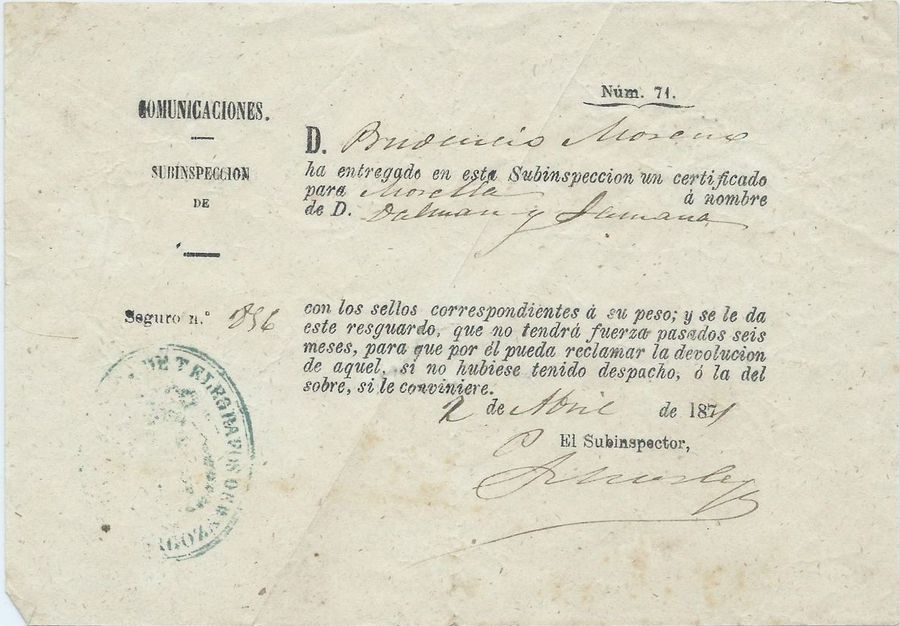 Núm. 71.
COMUNICACIONES.
SUBINSPECCION
DE
D. Prudencio Moreno
ha entregado en esta Subinspeccion un certificado
para Morella á nombre
de D. Dalmau y
Seguro n.° 856
con los sellos correspondientes á su peso; y se le da
este resguardo, que no tendrá fuerza pasados seis
meses, para que por él pueda reclamar la devolucion
de aquel, si no hubiese tenido despacho, ó la del
sobre, si le conviniere.
2 de Abril de 1871
El Subinspector,
DE TELEGRAFOS DE